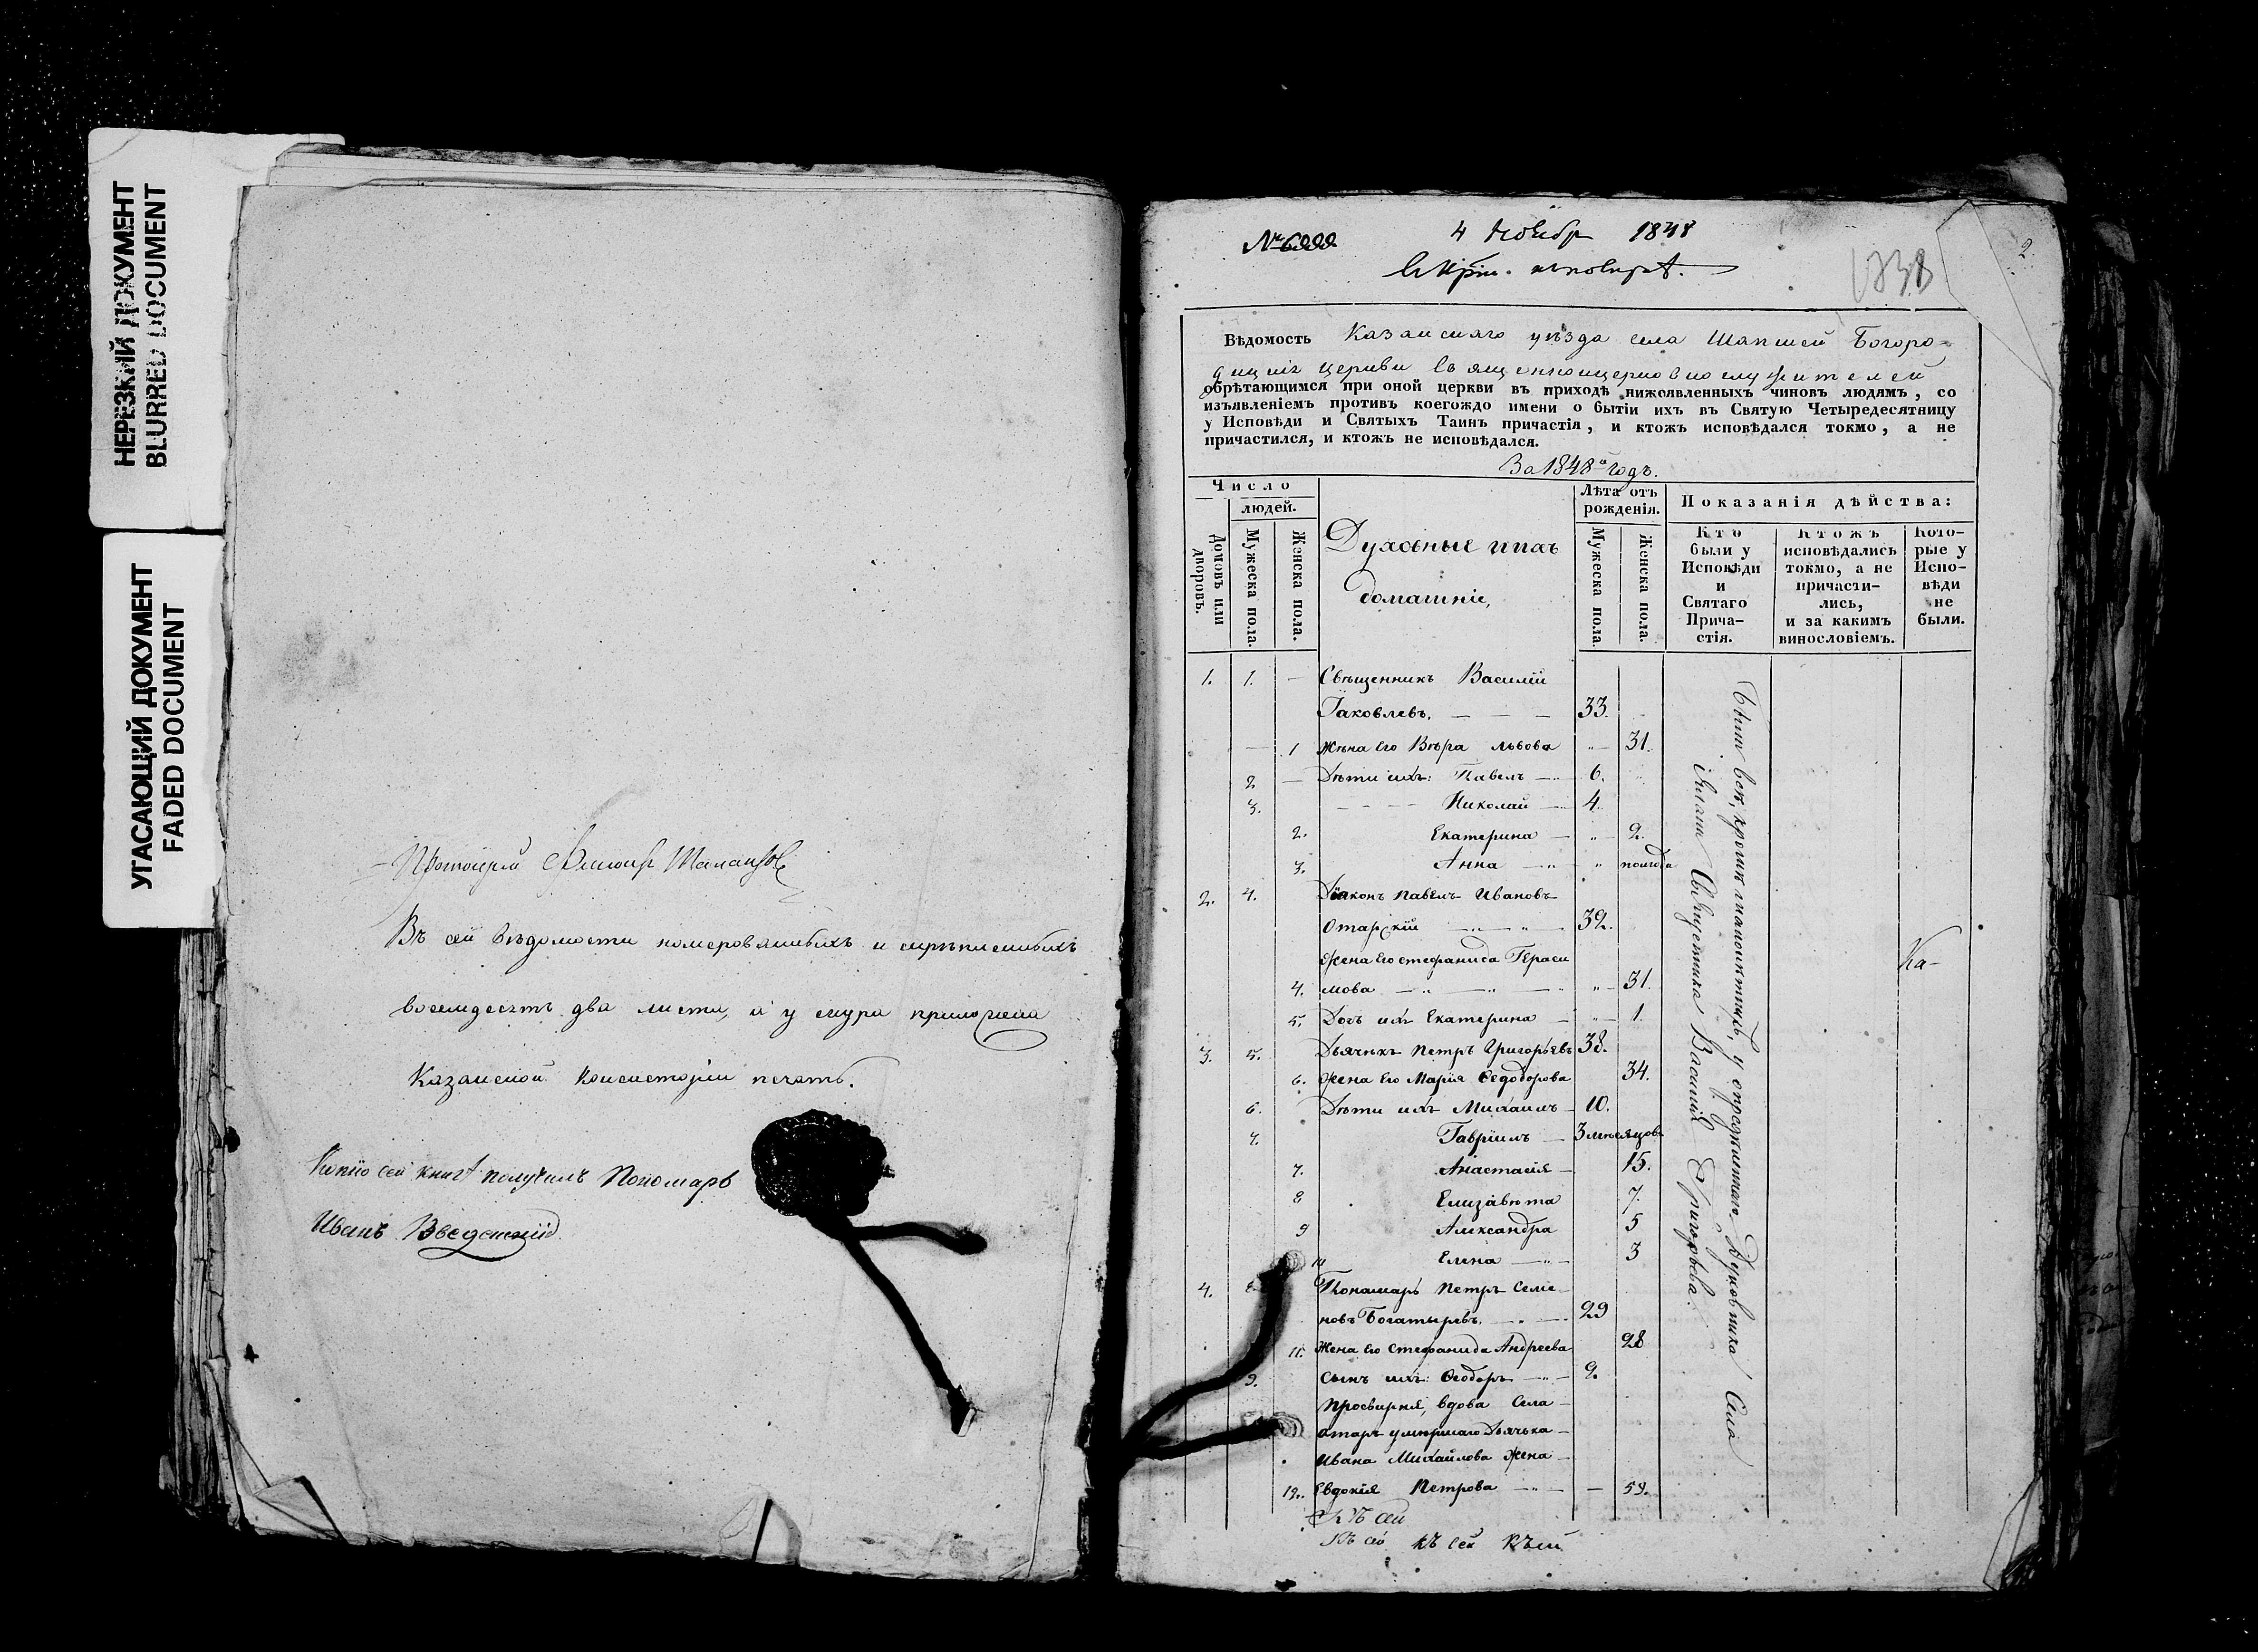 НЕРЕЗКИЙ ДОКУМЕНТ
BLURRED DOCUMENT
УГАСАЮЩИЙ ДОКУМЕНТ
FADED DOCUMENT
Протоіерей
Въ сей вѣдомости номерованныхъ и скрѣпленныхъ
восемдесятъ два листа, а у снура приложена
Казанской Консисторіи печать.
Копію сей книги получилъ Пономарь
Иванъ Введенскій
4 Ноября 1848
1838
2.
Вѣдомость Казанскаго уѣзда села Шапшей Богоро-
дицкія церкви священноцерковнослужителей
обрѣтающимся при оной церкви въ приходѣ нижеявленныхъ чиновъ людямъ, со
изъявленіемъ противъ коегождо имени о бытіи ихъ въ Святую Четыредесятницу
у Исповѣди и Святыхъ Таинъ причастія, и ктожъ исповѣдался токмо, а не
причастился, и ктожъ не исповѣдался.
За 1848й годъ.
Число
людей.
Домовъ или дворовъ.
Мужеска пола.
Женска пола.
Духовные и ихъ
домашніе,
Лѣта отъ рожденія.
Мужеска пола.
Женска пола.
Показанія дѣйства:
Кто были у Исповѣди и Святаго Прича-стія.
Ктожъ исповѣдались токмо, а не причасти-лись, и за какимъ винословіемъ.
Кото-рые у Испо-вѣди не были.
1. 1. — Священникъ Василій
Іаковлевъ. — — — 33.
— 1 Жена его Вѣра Львова " — 31.
2 — Дѣти ихъ: Павелъ — 6.
3. Николай — 4.
2. Екатерина — " 2.
3. Анна — " " полгода
2. 4. Діаконъ Павелъ Ивановъ
Отарскій — " — " — 32.
Жена его Стефанида Гераси
4. мова — " — " — " — 31.
5. Дочь ихъ Екатерина — " — 1.
3. 5. Дьячекъ Петръ Григорьевъ 38.
6. Жена его Марія Ѳеодорова 34.
6. Дѣти ихъ Михаилъ — 10.
7. Гавріилъ — 3 мѣсяцовъ
7. Анастасія — 15.
8 Елизавета 7.
9 Александра 5
10 Елена — 3
4. 8 Пономарь Петръ Семе-
новъ Богатыревъ. — " — 29
11. Жена его Стефанида Андреева 28
9. Сынъ ихъ: Ѳеодоръ — " — 2.
Просвирня, вдова Села —
Отаръ умершаго Дьячька —
Ивана Михайлова жена —
12. Евдокія Петрова — " — — 59.
Къ сей
Къ сей Къ сей Къ сей
Были всѣ, кромѣ малолѣтныхъ, у Духовника Села
Священника Василія Григорьева.
Ка-